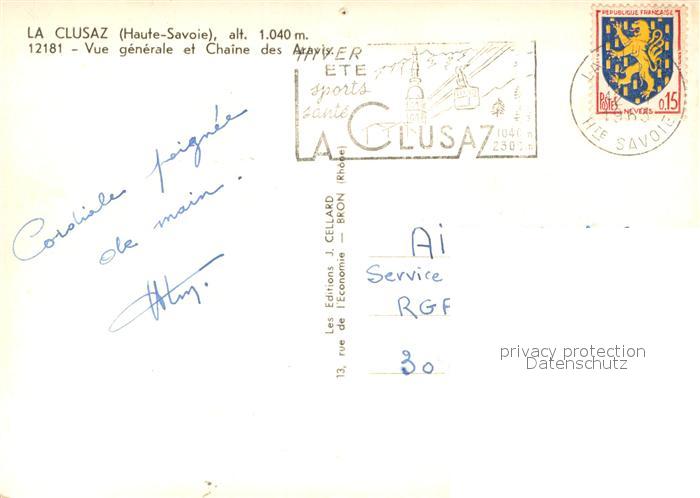 LA CLUSAZ (Haute-Savoie), alt. 1.040 m.
12181 - Vue générale et Chaîne des Aravis.
HIVER
ETE
sports
santé
LA CLUSAZ
1040 m
2500 m
REPUBLIQUE FRANÇAISE
POSTES 0,15
NEVERS
LA
HTE SAVOIE
Cordiale poignée
de main.
Les Editions J. CELLARD
13, rue de l'Economie — BRON (Rhône)
Ai
Service
RGF
30
privacy protection
Datenschutz